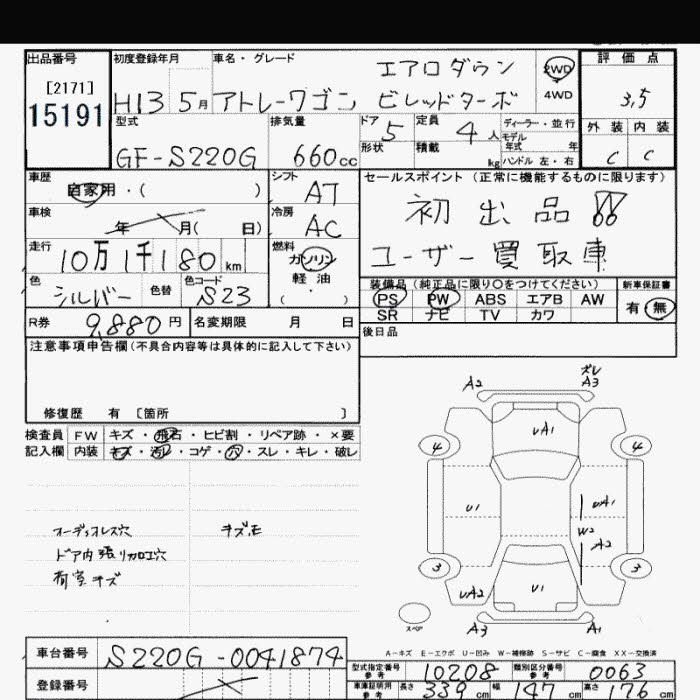 出品番号 初度登録年月 車名・グレード 評価点
[2171] エアロダウン 2WD
15191 H13 5月 アトレーワゴン ビレッドターボ 4WD 3.5
型式 排気量 ドア 5 定員 4人 ディーラー・並行 外装 内装
モデル年式 年式
GF-S220G 660cc 形状 積載 kg ハンドル 左・右 C C
車歴 自家用・( ) シフト AT セールスポイント(正常に機能するものに限ります)
車検 年 月( 日) 冷房 AC 初出品!!
走行 10万1千180km 燃料 ガソリン ユーザー買取車
軽油
色 シルバー 色替 色コード S23 ( ・ ) 装備品(純正品に限り○をつけてください) 新車保証書
PS PW ABS エアB AW 有・無
SR ナビ TV カワ
R券 9,880円 名変期限 月 日 後日品
注意事項申告欄(不具合内容等は具体的に記入して下さい)
修復歴 有 [箇所 ]
検査員 FW キズ・飛石・ヒビ割・リペア跡・×要
記入欄 内装 キズ・汚れ・コゲ・穴・スレ・キレ・破レ
A2 ズレ A3
UA1
4 4
U1 UA1
W2
A2
3 3
UA2 U1
スペア A3 A1
オーディオレス穴 キズ、モ
ドア内張リカロエ穴
荷室キズ
A-キズ E-エクボ U-凹み W-補修跡 S-サビ C-腐食 XX-交換済
車台番号 S220G-0041874
型式指定番号 参考 10208 類別区分番号 参考 0063
登録番号 車庫証明用 参考 長さ 339cm 幅 147cm 高さ 176cm